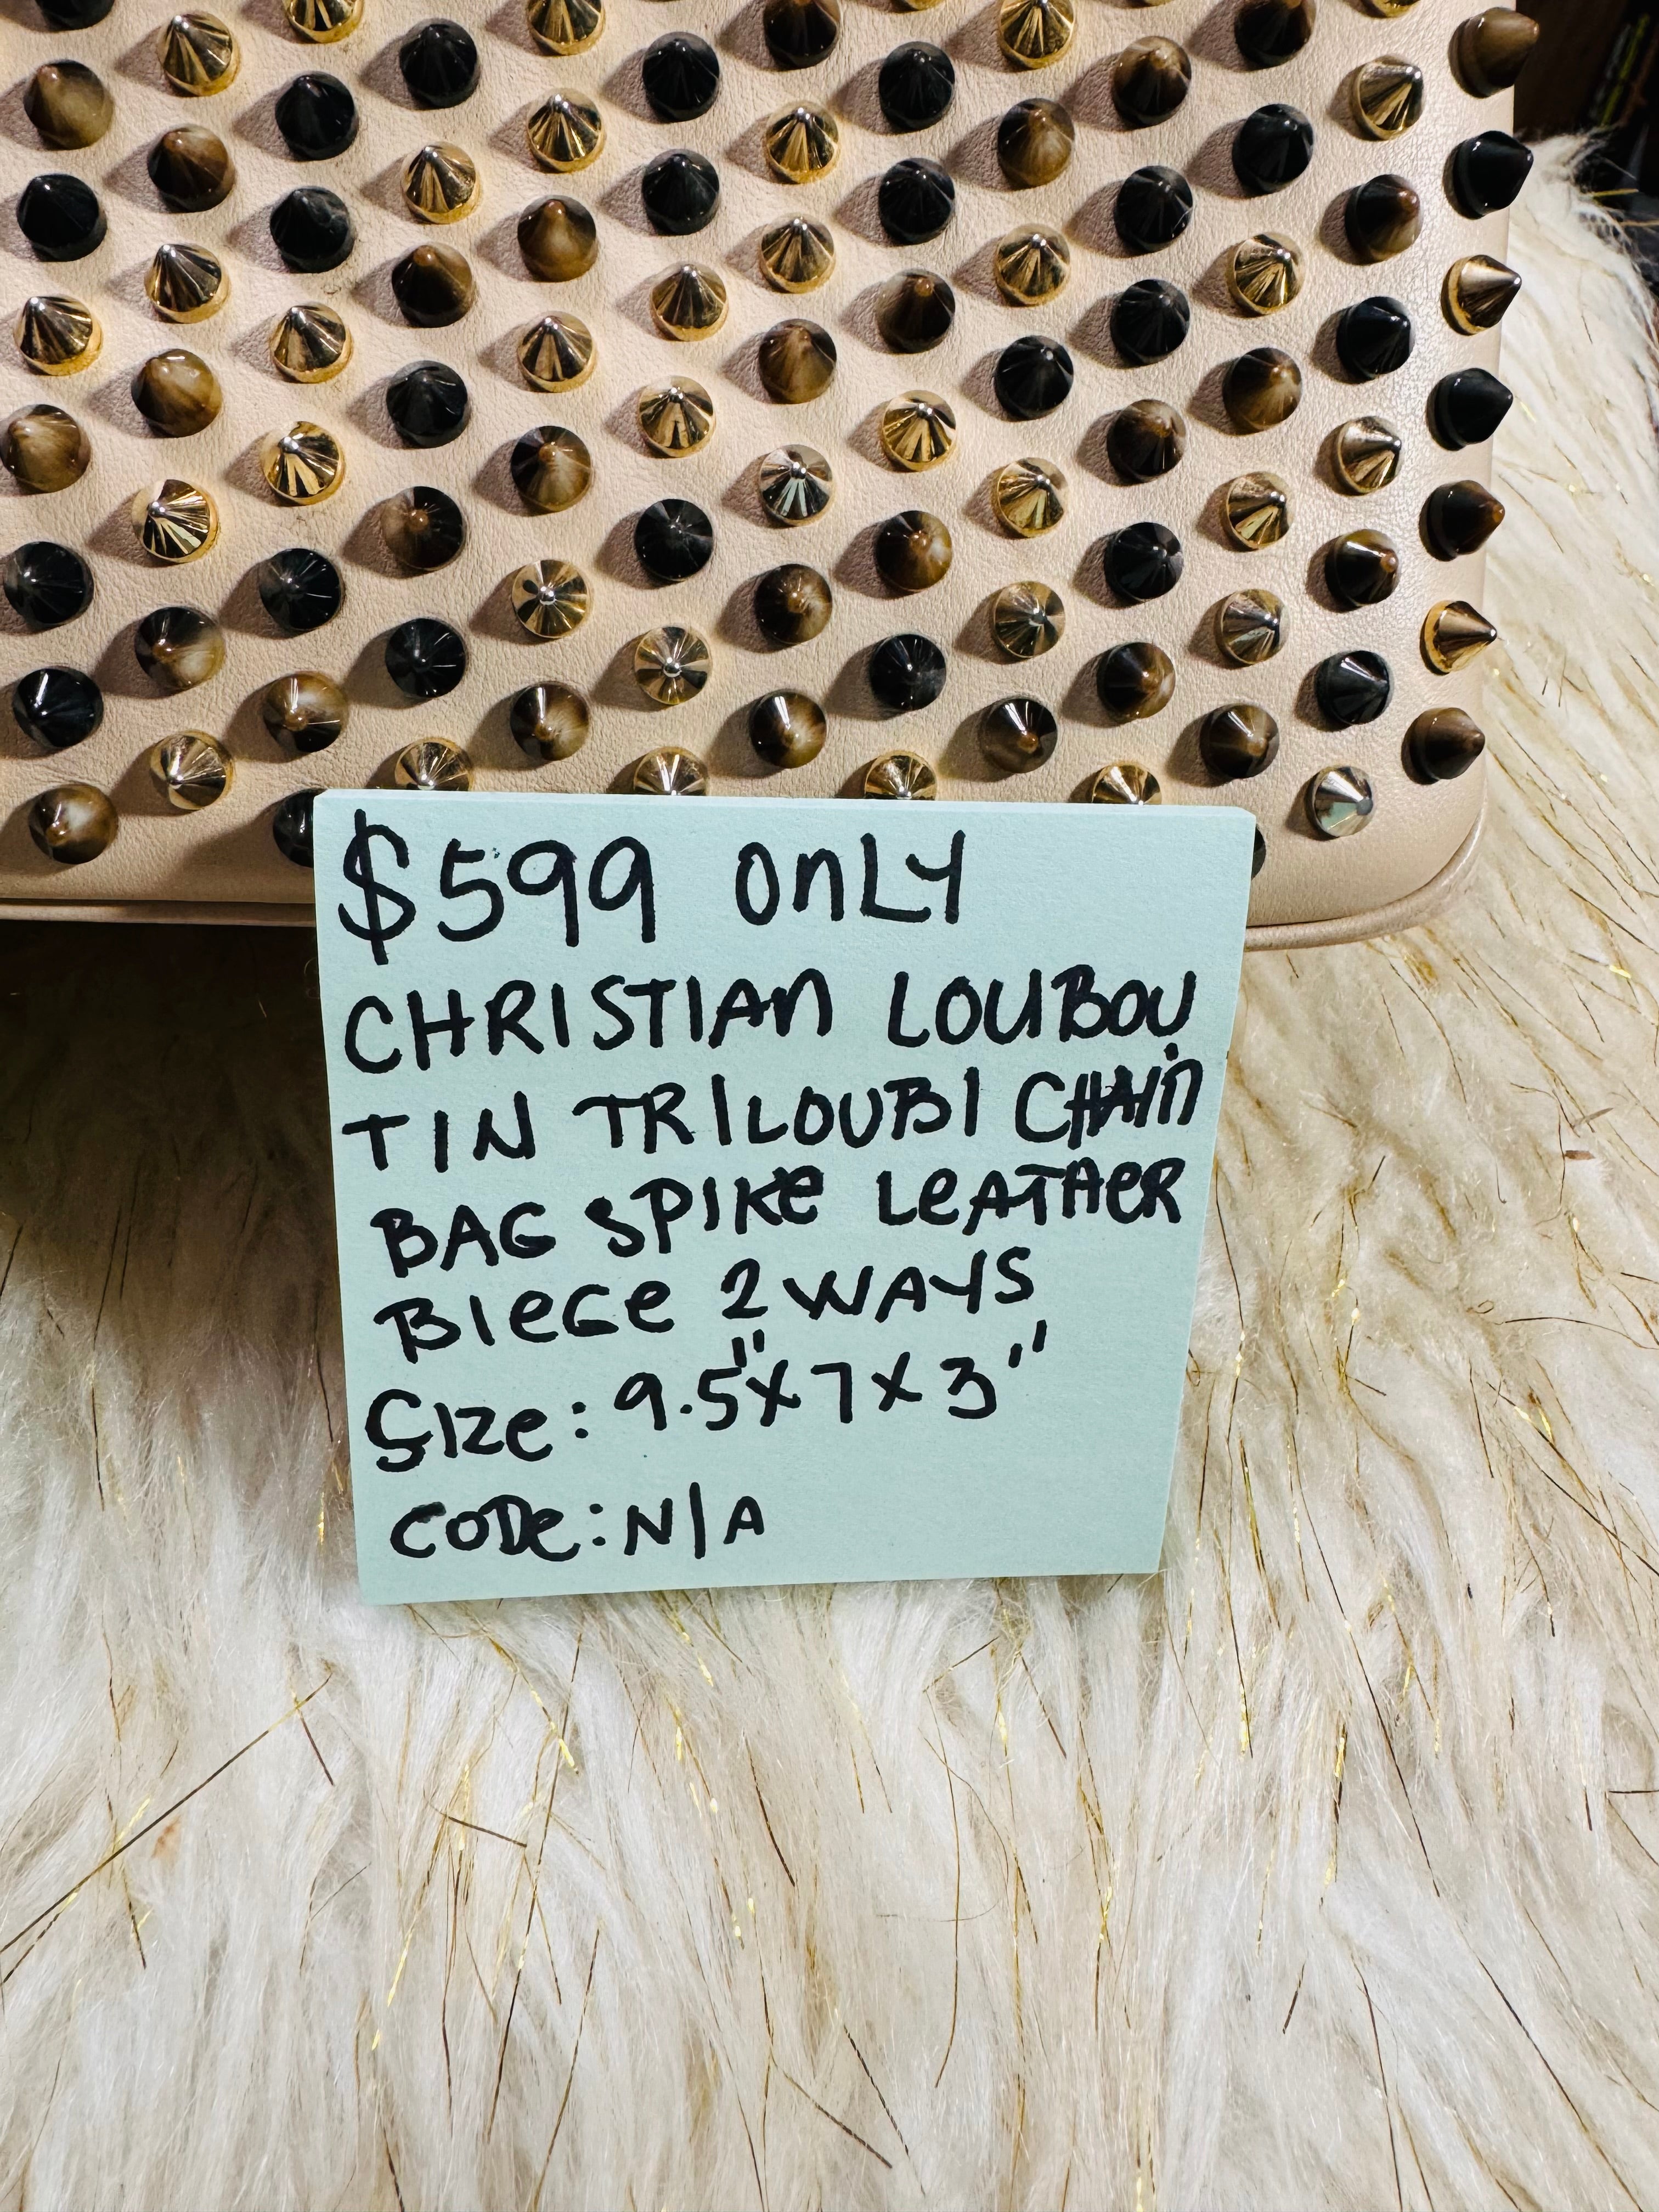 $599 ONLY
CHRISTIAN LOUBOU
TIN TRILOUBI CHAIN
BAG SPIKE LEATHER
BIEGE 2 WAYS
SIZE: 9.5"X7X3"
CODE: N/A